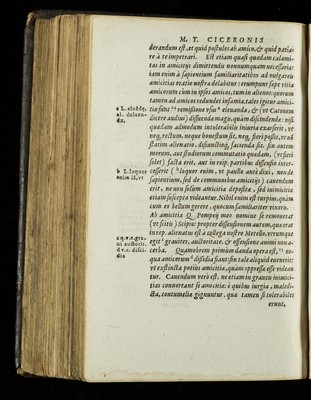 M. T. CICERONIS
derandum est, et quid postules ab amico, & quid patia-
re à te impetrari. Est etiam quasi quædam calami-
tas in amicitijs dimittendis nonnumquam necessaria:
iam enim à sapientium familiaritatibus ad vulgares
amicitias oratio nostra delabitur: erumpunt sæpe vitia
amicorum cùm in ipsos amicos, tum in alienos: quorum
tamen ad amicos redundet infamia. tales igitur amici-
tiæ sunt remissione vsus eleuanda, & (vt Catonem
dicere audiui) dissuenda magis, quàm discindenda: nisi
quædam admodum intolerabilis iniuria exarserit, vt
neq; rectum, neque honestum sit, neq; fieri possit, vt nō
statim alienatio, disiunctioq́; facienda sit. sin autem
morum, aut studiorum commutatio quædam, (vt fieri
solet) facta erit, aut in reip. partibus dissensio inter-
cesserit ( loquor enim, vt paullo antè dixi, non de
sapientium, sed de communibus amicitijs) cauendum
erit, ne non solùm amicitiæ depositæ, sed inimicitiæ
etiam susceptæ videantur. Nihil enim est turpius, quàm
cum eo bellum gerere, quocum familiariter vixeris.
Ab amicitia Q. Pompeij meo nomine se remouerat
(vt scitis) Scipio: propter dissensionem autem, quæ erat
in rep. alienatus est à collega nostro Metello. vtrumque
egit grauiter, auctoritate, & offensione animi non a-
cerba. Quamobrem primùm danda opera est, ne
qua amicorum dissidia fiant: sin tale aliquid euenerit:
vt extinctæ potius amicitiæ, quàm oppressæ esse videan
tur. Cauendum verò est, ne etiam in graueis inimici-
tias conuertant se amicitiæ: è quibus iurgia, maledi-
cta, contumeliæ gignuntur. quæ tamen si tolerabiles
erunt,
a L. eluēdę.
b L. loquor
enim iā, vt
c q. v. c. gra
ui auctorit.
d v. c. dissi-
dia